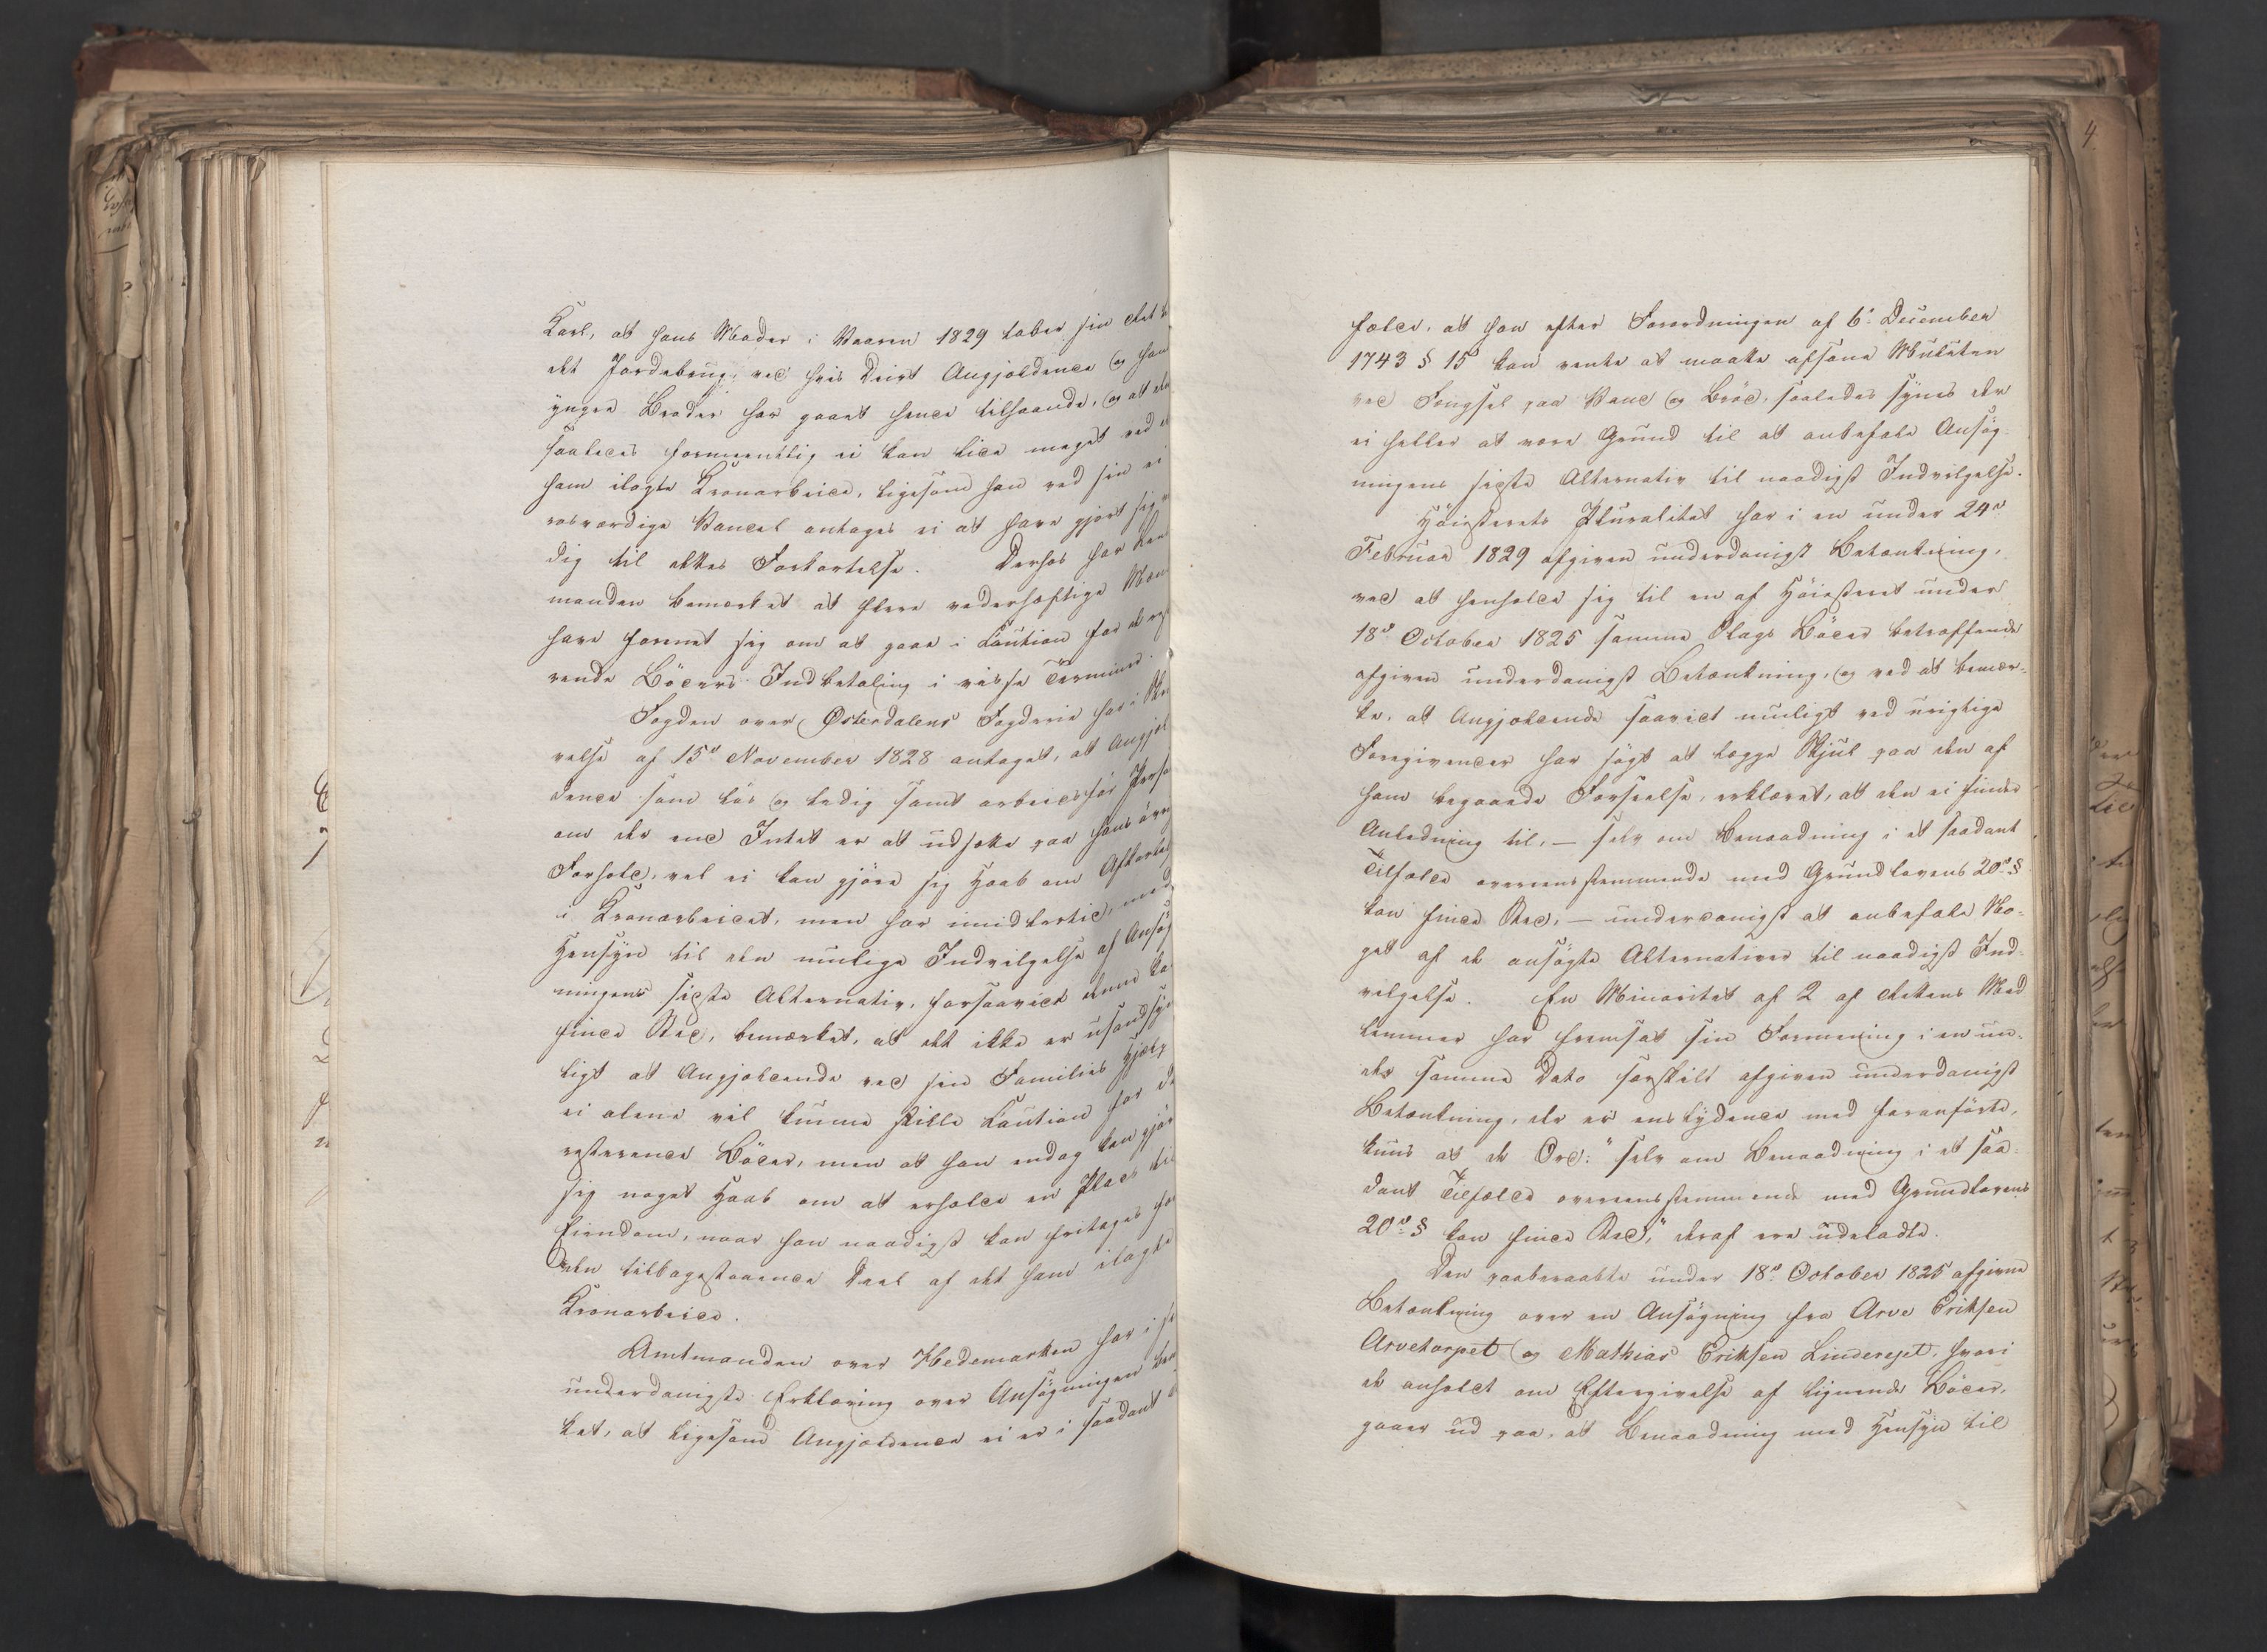 Karl, at hans Moder i Vaaren 1829 taber sin
det Jordebrug, ved hvis Drivt Angjældende og han
yngre Broder har gaaet hende tilhaande, og at
saaledes formeentlig ei kan lide meget ved
ham ilagte Kronarbeide, ligesom han ved sin
rosværdige Vandel antages ei at have gjort sig
dig til dettes Forkortelse. Derhos har
manden bemærket at flere vederhæftige
have formet sig om at gaae i Caution for
rende Böders Indbetaling i visse Terminer.
Fogden over Østerdalens Fogderie har i
velse af 15de November 1828 antaget, at
dende som lös og ledig samt arbeidsför
om der end Intet er at udsætte paa hans
Forhold, vel ei kan gjöre sig Haab om
i Kronarbeidet, men har imidlertid, med
Hensyn til den mulige Indvilgelse af
ningens sidste Alternativ, forsaavidt denne
finde Sted, bemærket, at det ikke er
ligt at Angjældende ved sin Families Hjælp
ei alene vil kunne stille Caution for
resterende Böder, men at han endog kan
sig noget Haab om at erholde en Plads
Eiendom, naar han naadigst kan fritages
den tilbagestaaende Deel af det ham ilagte
Kronarbeide.
Amtmanden over Hedemarken har i
underdanigste Erklæring over Ansögningen
ket, at ligesom Angjældende ei er i saadant
4.
fælde, at han efter Forordningen af 6te December
1743 § 15 kan vente at maatte afsone Mulcten
ved Fængsel paa Vand og Bröd, saaledes synes der
ei heller at være Grund til at anbefale Ansög-
ningens sidste Alternativ til naadigst Indvilgelse.
Höiesterets Pluralitet har i en under 24de
Februar 1829 afgiven underdanigst Betænkning,
ved at henholde sig til en af Höiesteret under
18de October 1825 samme Slags Böder betræffende
afgiven underdanigst Betænkning, og ved at bemær-
ke, at Angjældende saavidt muligt ved urigtige
Foregivender har sögt at lægge Skjul paa den af
ham begaaede Forseelse, erklæret, at den ei finder
Anledning til, — selv om Benaadning i et saadant
Tilfælde overeensstemmende med Grundlovens 20de §
kan finde Sted, — underdanigst at anbefale No-
get af de ansögte Alternativer til naadigst Ind-
vilgelse. En Minoritet af 2 af Rettens Med
lemmer har fremsat sin Formening i en un-
der samme Dato særskilt afgiven underdanigst
Betænkning, der er enslydende med foranförte,
kuns at de Ord: "selv om Benaadning i et saa-
dant Tilfælde overeensstemmende med Grundlovens
20de § kan finde Sted," deraf ere udeladte.
Den paaberaabte under 18de October 1825 afgivne
Betænkning over en Ansögning fra Arve Eriksen
Arvetorpet og Mathias Eriksen Linderejet, hvori
de anholdt om Eftergivelse af lignende Böder,
gaaer ud paa, at Benaadning med Hensyn til